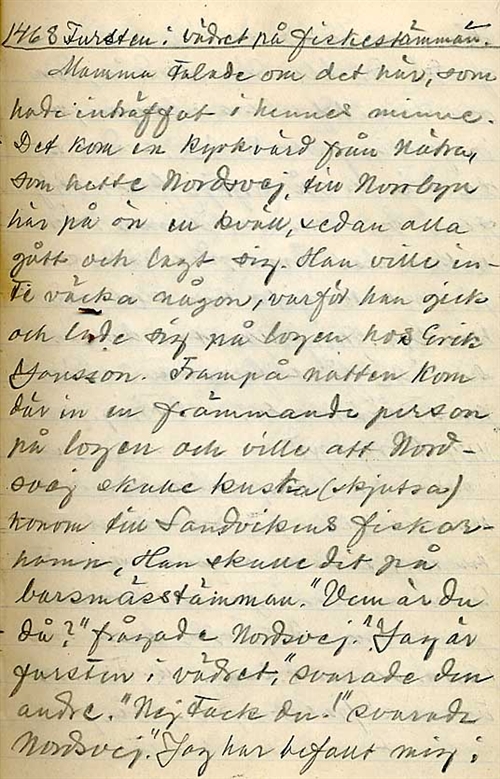 1468 Fursten i vädret på fiskestämman.
Mamma talade om det här, som
hade inträffat i hennes minne.
Det kom en kyrkvärd från Nätra,
som hette Nordsvej, till Norrbyn
här på ön en kväll, sedan alla
gått och lagt sig. Han ville in-
te väcka någon, varför han gick
och lade sig på logen hos Erik
Jonsson. Frampå natten kom
där in en främmande person
på logen och ville att Nord-
svej skulle kuska (skjutsa)
honom till Sandvikens fiskar-
hamn. Han skulle dit på
barsmässtämman. "Vem är du
då?" frågade Nordsvej. "Jag är
fursten i vädret," svarade den
andre. "Nej tack du!" svarade
Nordsvej. "Jag har befallt mig i